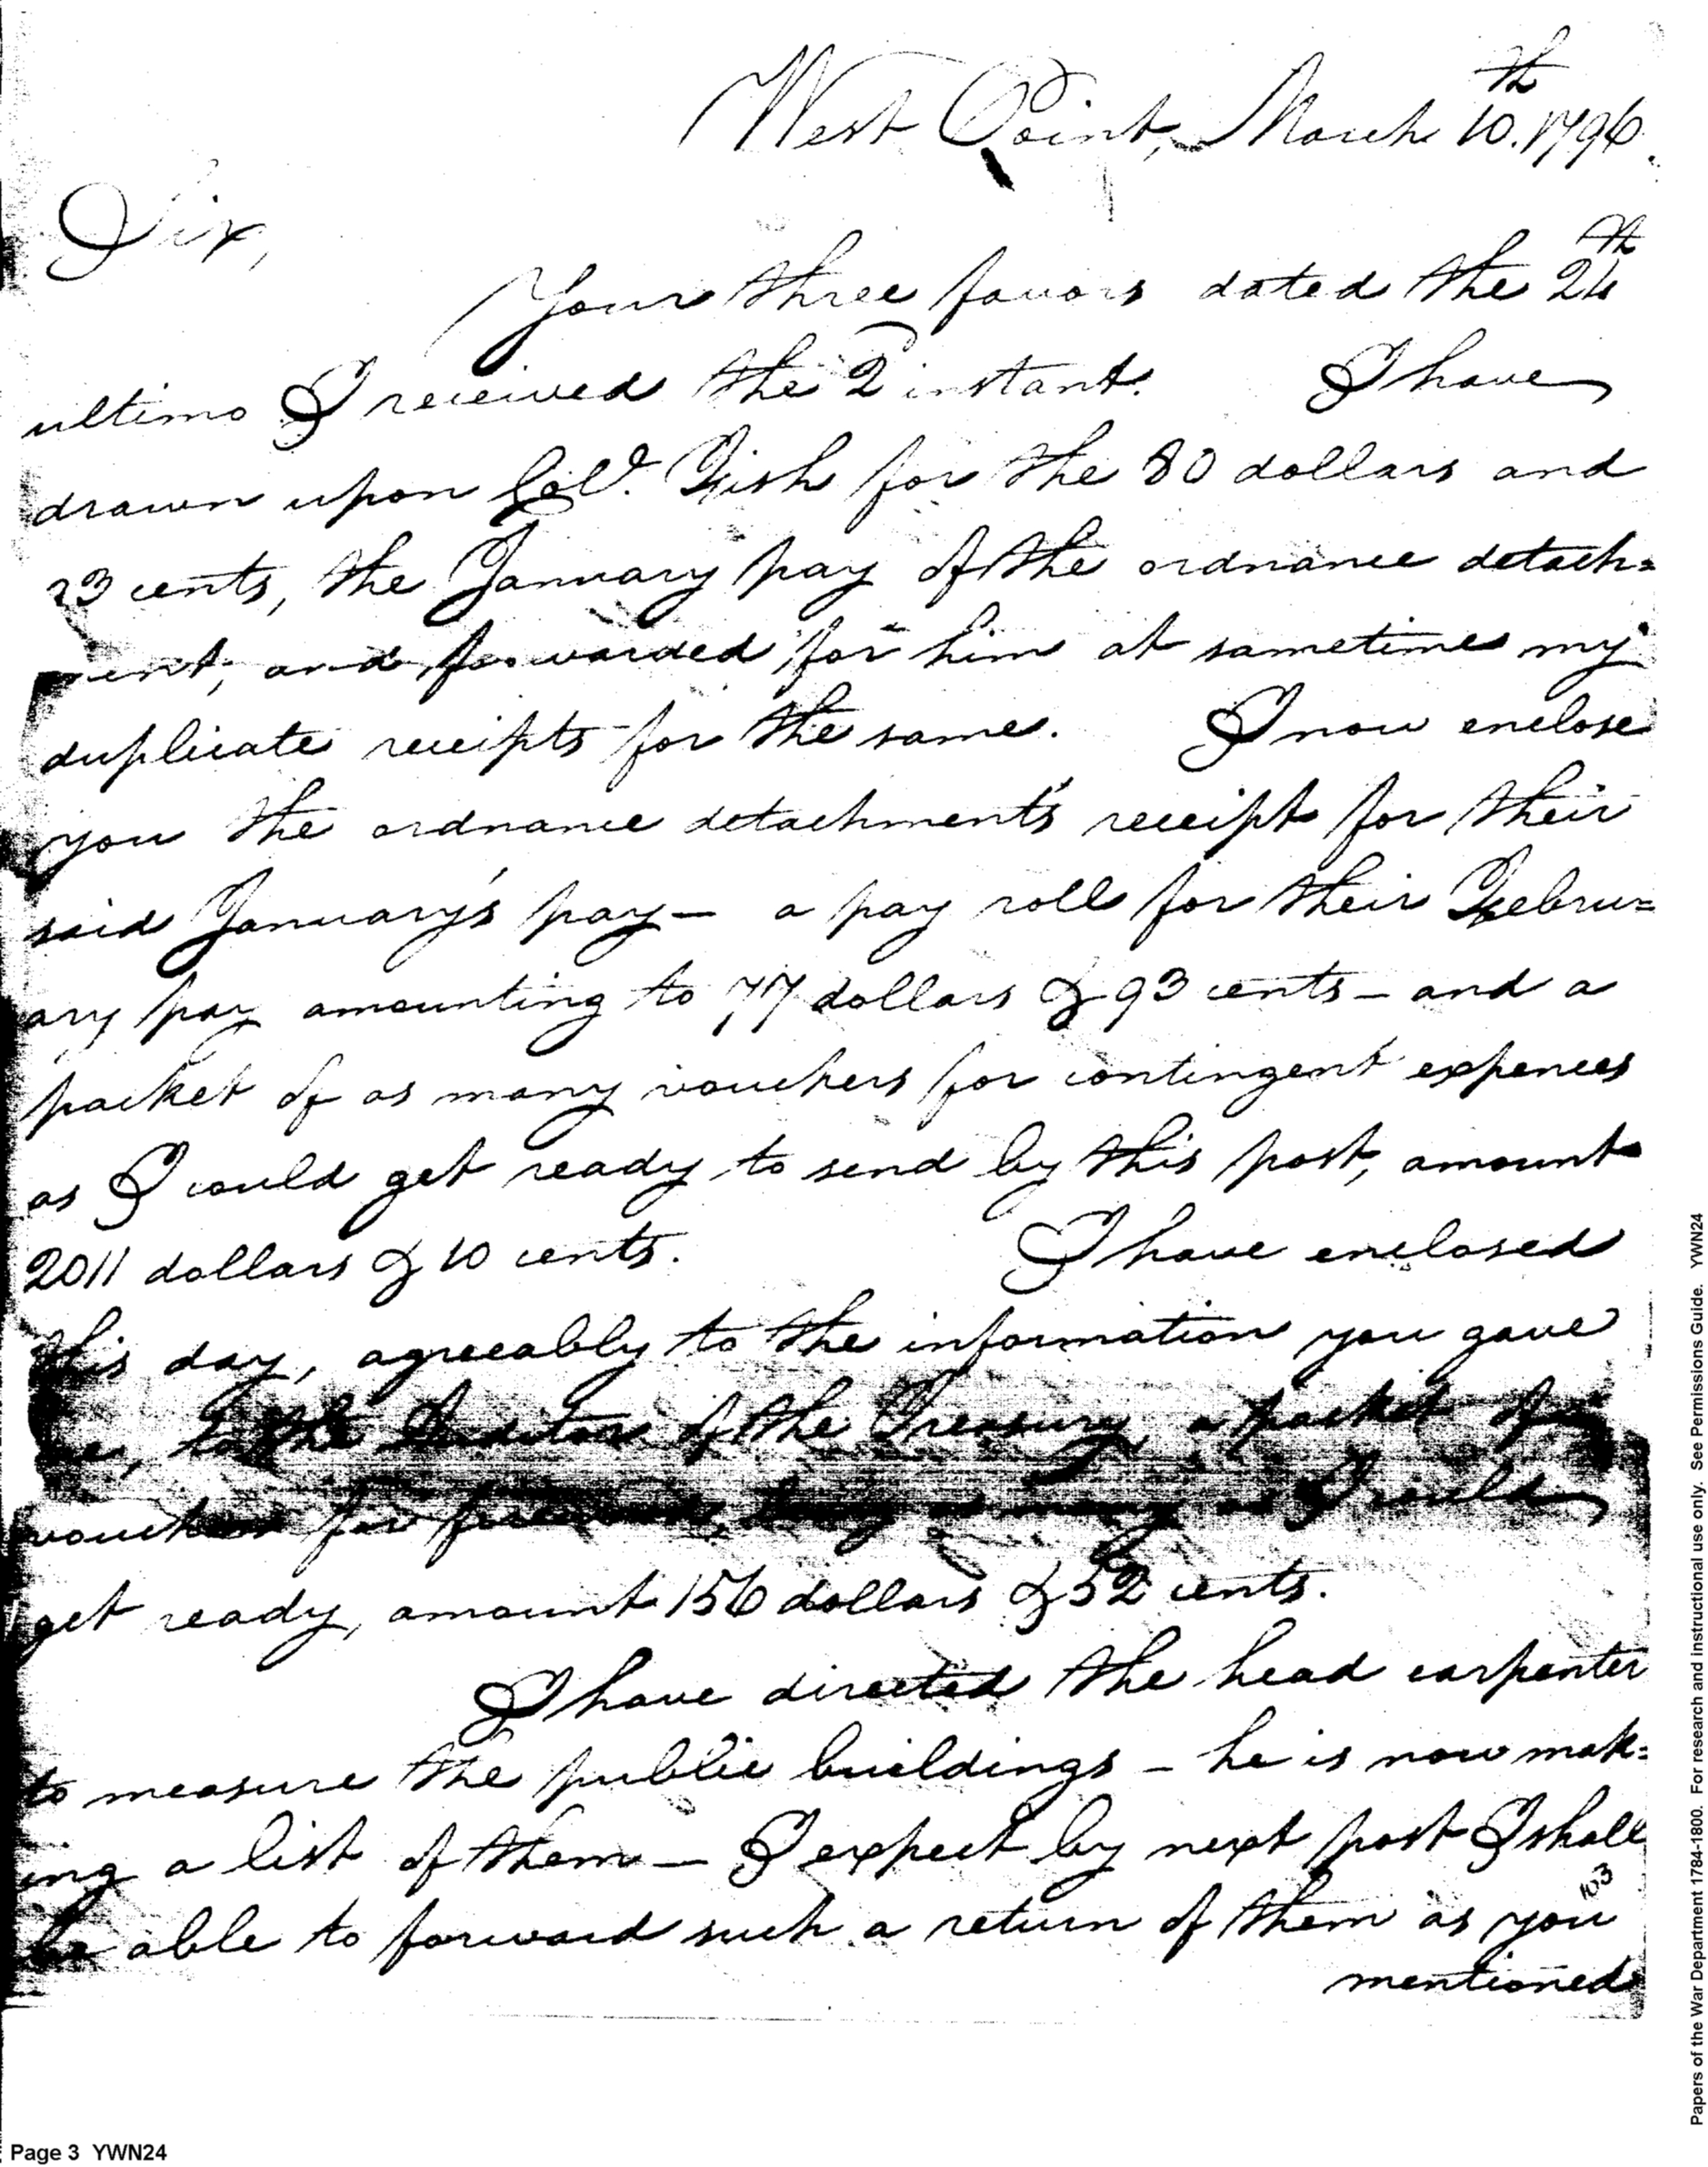 West Point, March 10.th 1796.
Sir,
Your three favors dated the 24th
ultimo I received the 2 instant. I have
drawn upon Col. Fish for the 80 dollars and
23 cents, the January pay of the ordnance detach=
ment, and forwarded for him at sametime my
duplicate receipts for the same. I now enclose
you the ordnance detachment's receipt for their
said January's pay — a pay roll for their Febru=
ary pay amounting to 77 dollars & 93 cents — and a
packet of as many vouchers for contingent expences
as I could get ready to send by this post, amount
2011 dollars & 10 cents. I have enclosed
this day, agreeably to the information you gave
me, to the Auditor of the Treasury, a packet of
vouchers for as many as I could
get ready, amount 156 dollars & 52 cents.
I have directed the head carpenter
to measure the public buildings — he is now mak=
ing a list of them — I expect by next post I shall
be able to forward such a return of them as you
103
mentioned
Page 3 YWN24
Papers of the War Department 1784-1800. For research and instructional use only. See Permissions Guide. YWN24